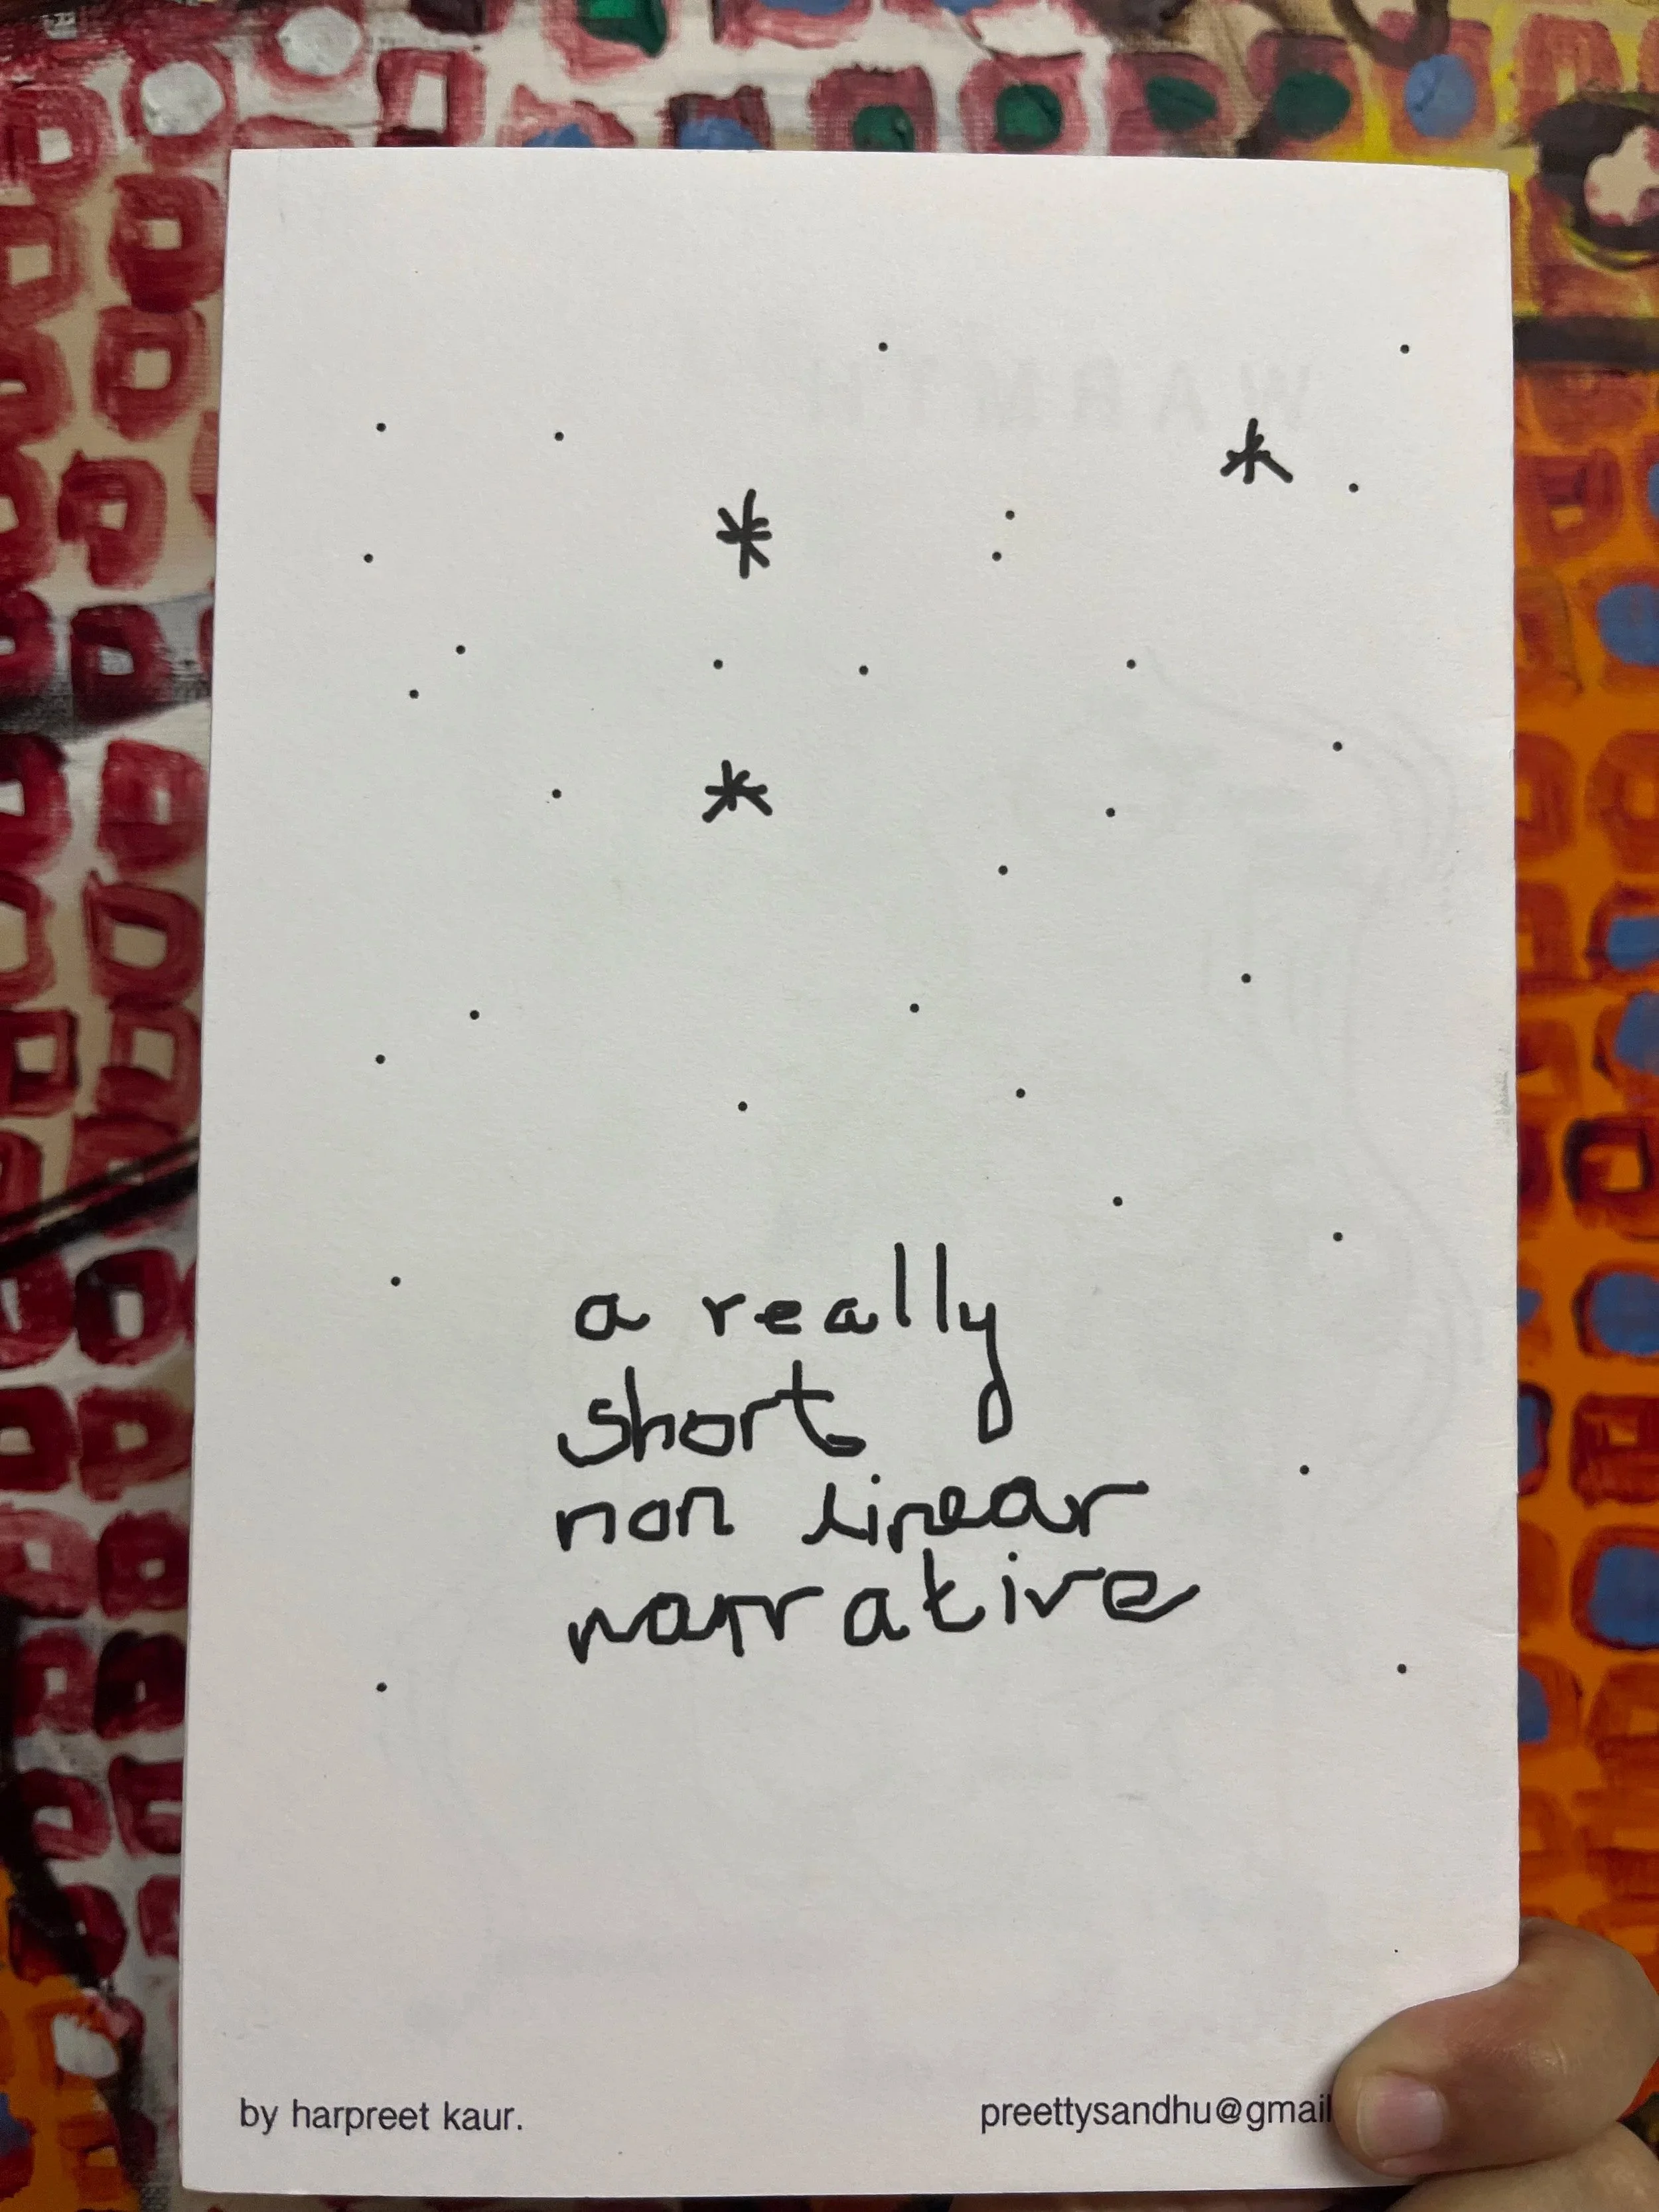 WARMTH
a really
short
non linear
narrative
by harpreet kaur.
preettysandhu@gmail